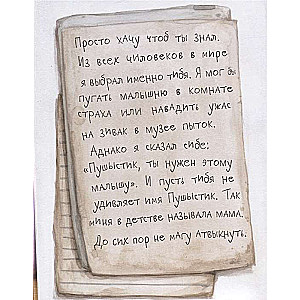 Просто хачу чтоб ты знал.
Из всех чиловеков в мире
я выбрал именно тибя. Я мог бы
пугать малышню в комнате
страха или навадить ужас
на зивак в музее пыток.
Аднако я сказал сибе:
«Пушыстик, ты нужен этому
малышу». И пусть тибя не
удивляет имя Пушыстик. Так
миня в детстве называла мама.
До сих пор не магу атвыкнуть.